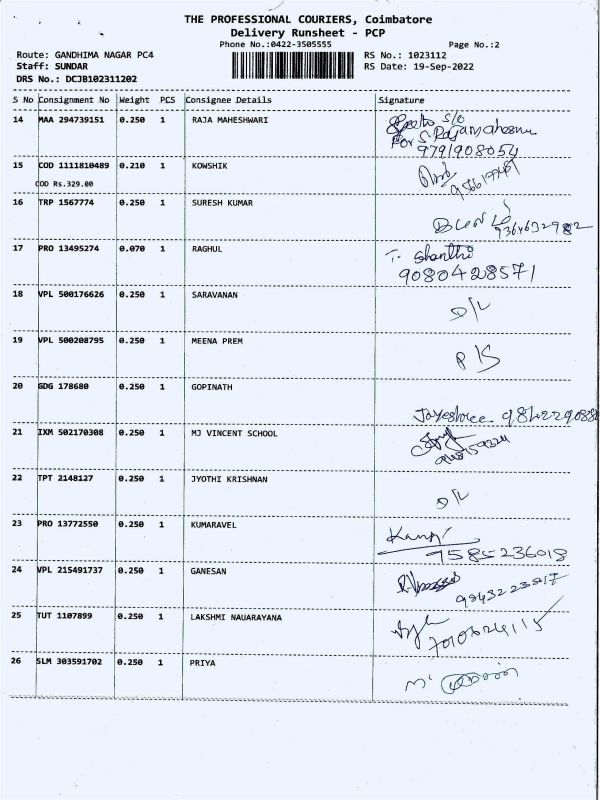 THE PROFESSIONAL COURIERS, Coimbatore
Delivery Runsheet - PCP
Phone No.:0422-3505555 Page No.:2
Route: GANDHIMA NAGAR PC4 RS No.: 1023112
Staff: SUNDAR RS Date: 19-Sep-2022
DRS No.: DCJB102311202
S No Consignment No Weight PCS Consignee Details Signature
14 MAA 294739151 0.250 1 RAJA MAHESHWARI
S/o
For S. Rajamaheswari
9791908054
15 COD 1111810489 0.210 1 KOWSHIK
COD Rs.329.00
16 TRP 1567774 0.250 1 SURESH KUMAR
9364632982
17 PRO 13495274 0.070 1 RAGHUL T. Shanthi
9080428571
18 VPL 500176626 0.250 1 SARAVANAN D/L
19 VPL 500208795 0.250 1 MEENA PREM
20 GDG 178680 0.250 1 GOPINATH
Jayeshree
21 IXM 502170308 0.250 1 MJ VINCENT SCHOOL
22 TPT 2148127 0.250 1 JYOTHI KRISHNAN D/L
23 PRO 13772550 0.250 1 KUMARAVEL
9585236018
24 VPL 215491737 0.250 1 GANESAN
25 TUT 1107899 0.250 1 LAKSHMI NAUARAYANA
26 SLM 303591702 0.250 1 PRIYA